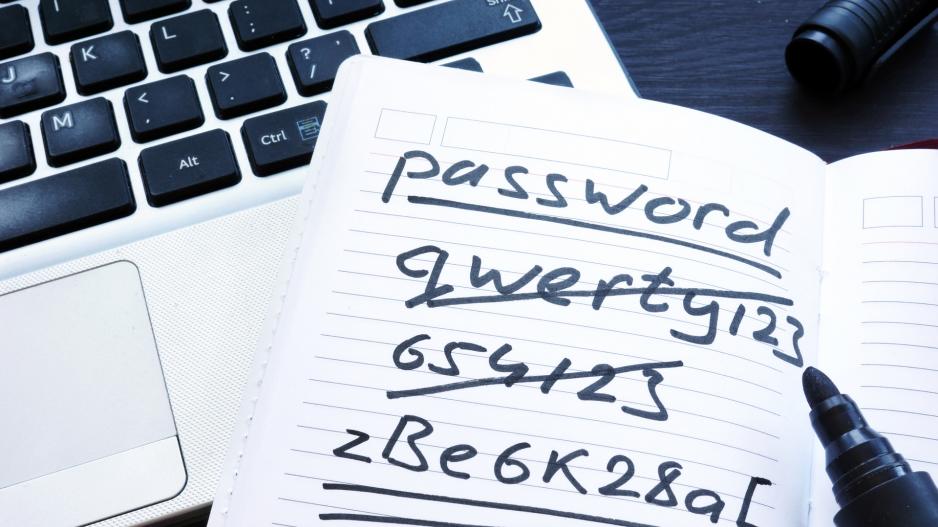 Shift
K L : ;
J < , > . ? /
M
Alt Ctrl
password
qwerty123
654123
zBe6K28a[